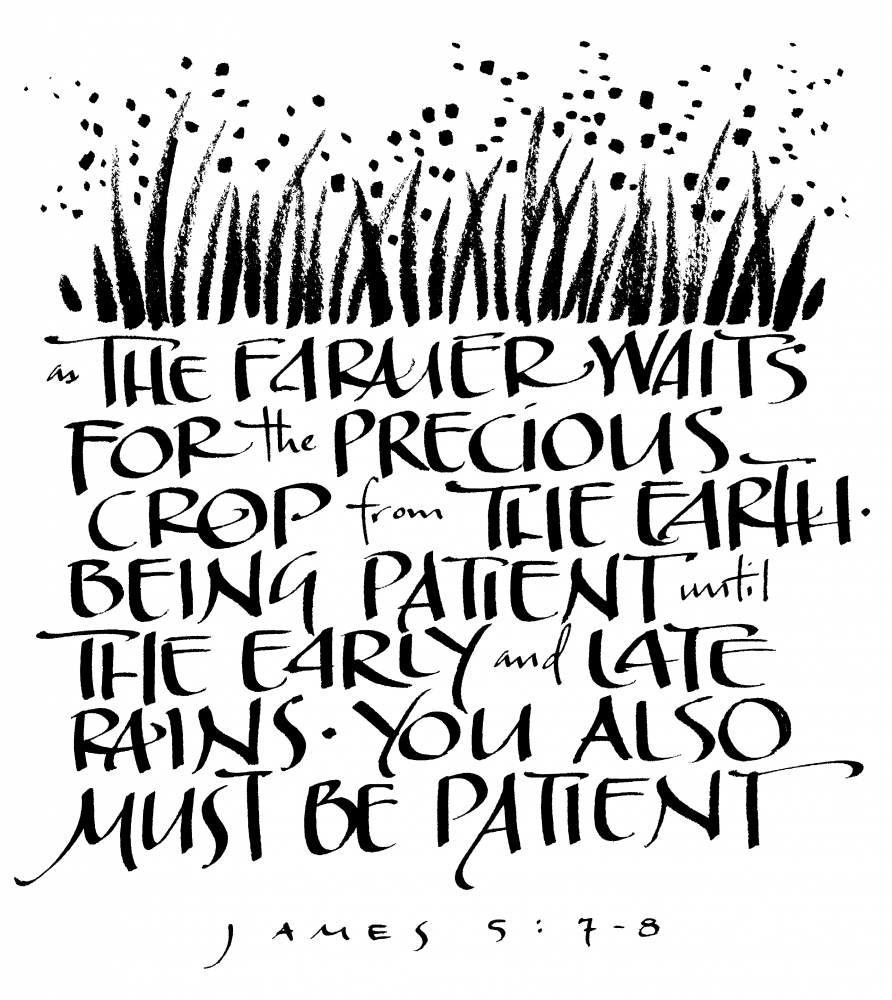 as THE FARMER WAITS
FOR the PRECIOUS
CROP from THE EARTH·
BEING PATIENT until
THE EARLY and LATE
RAINS· YOU ALSO
MUST BE PATIENT
JAMES 5:7-8